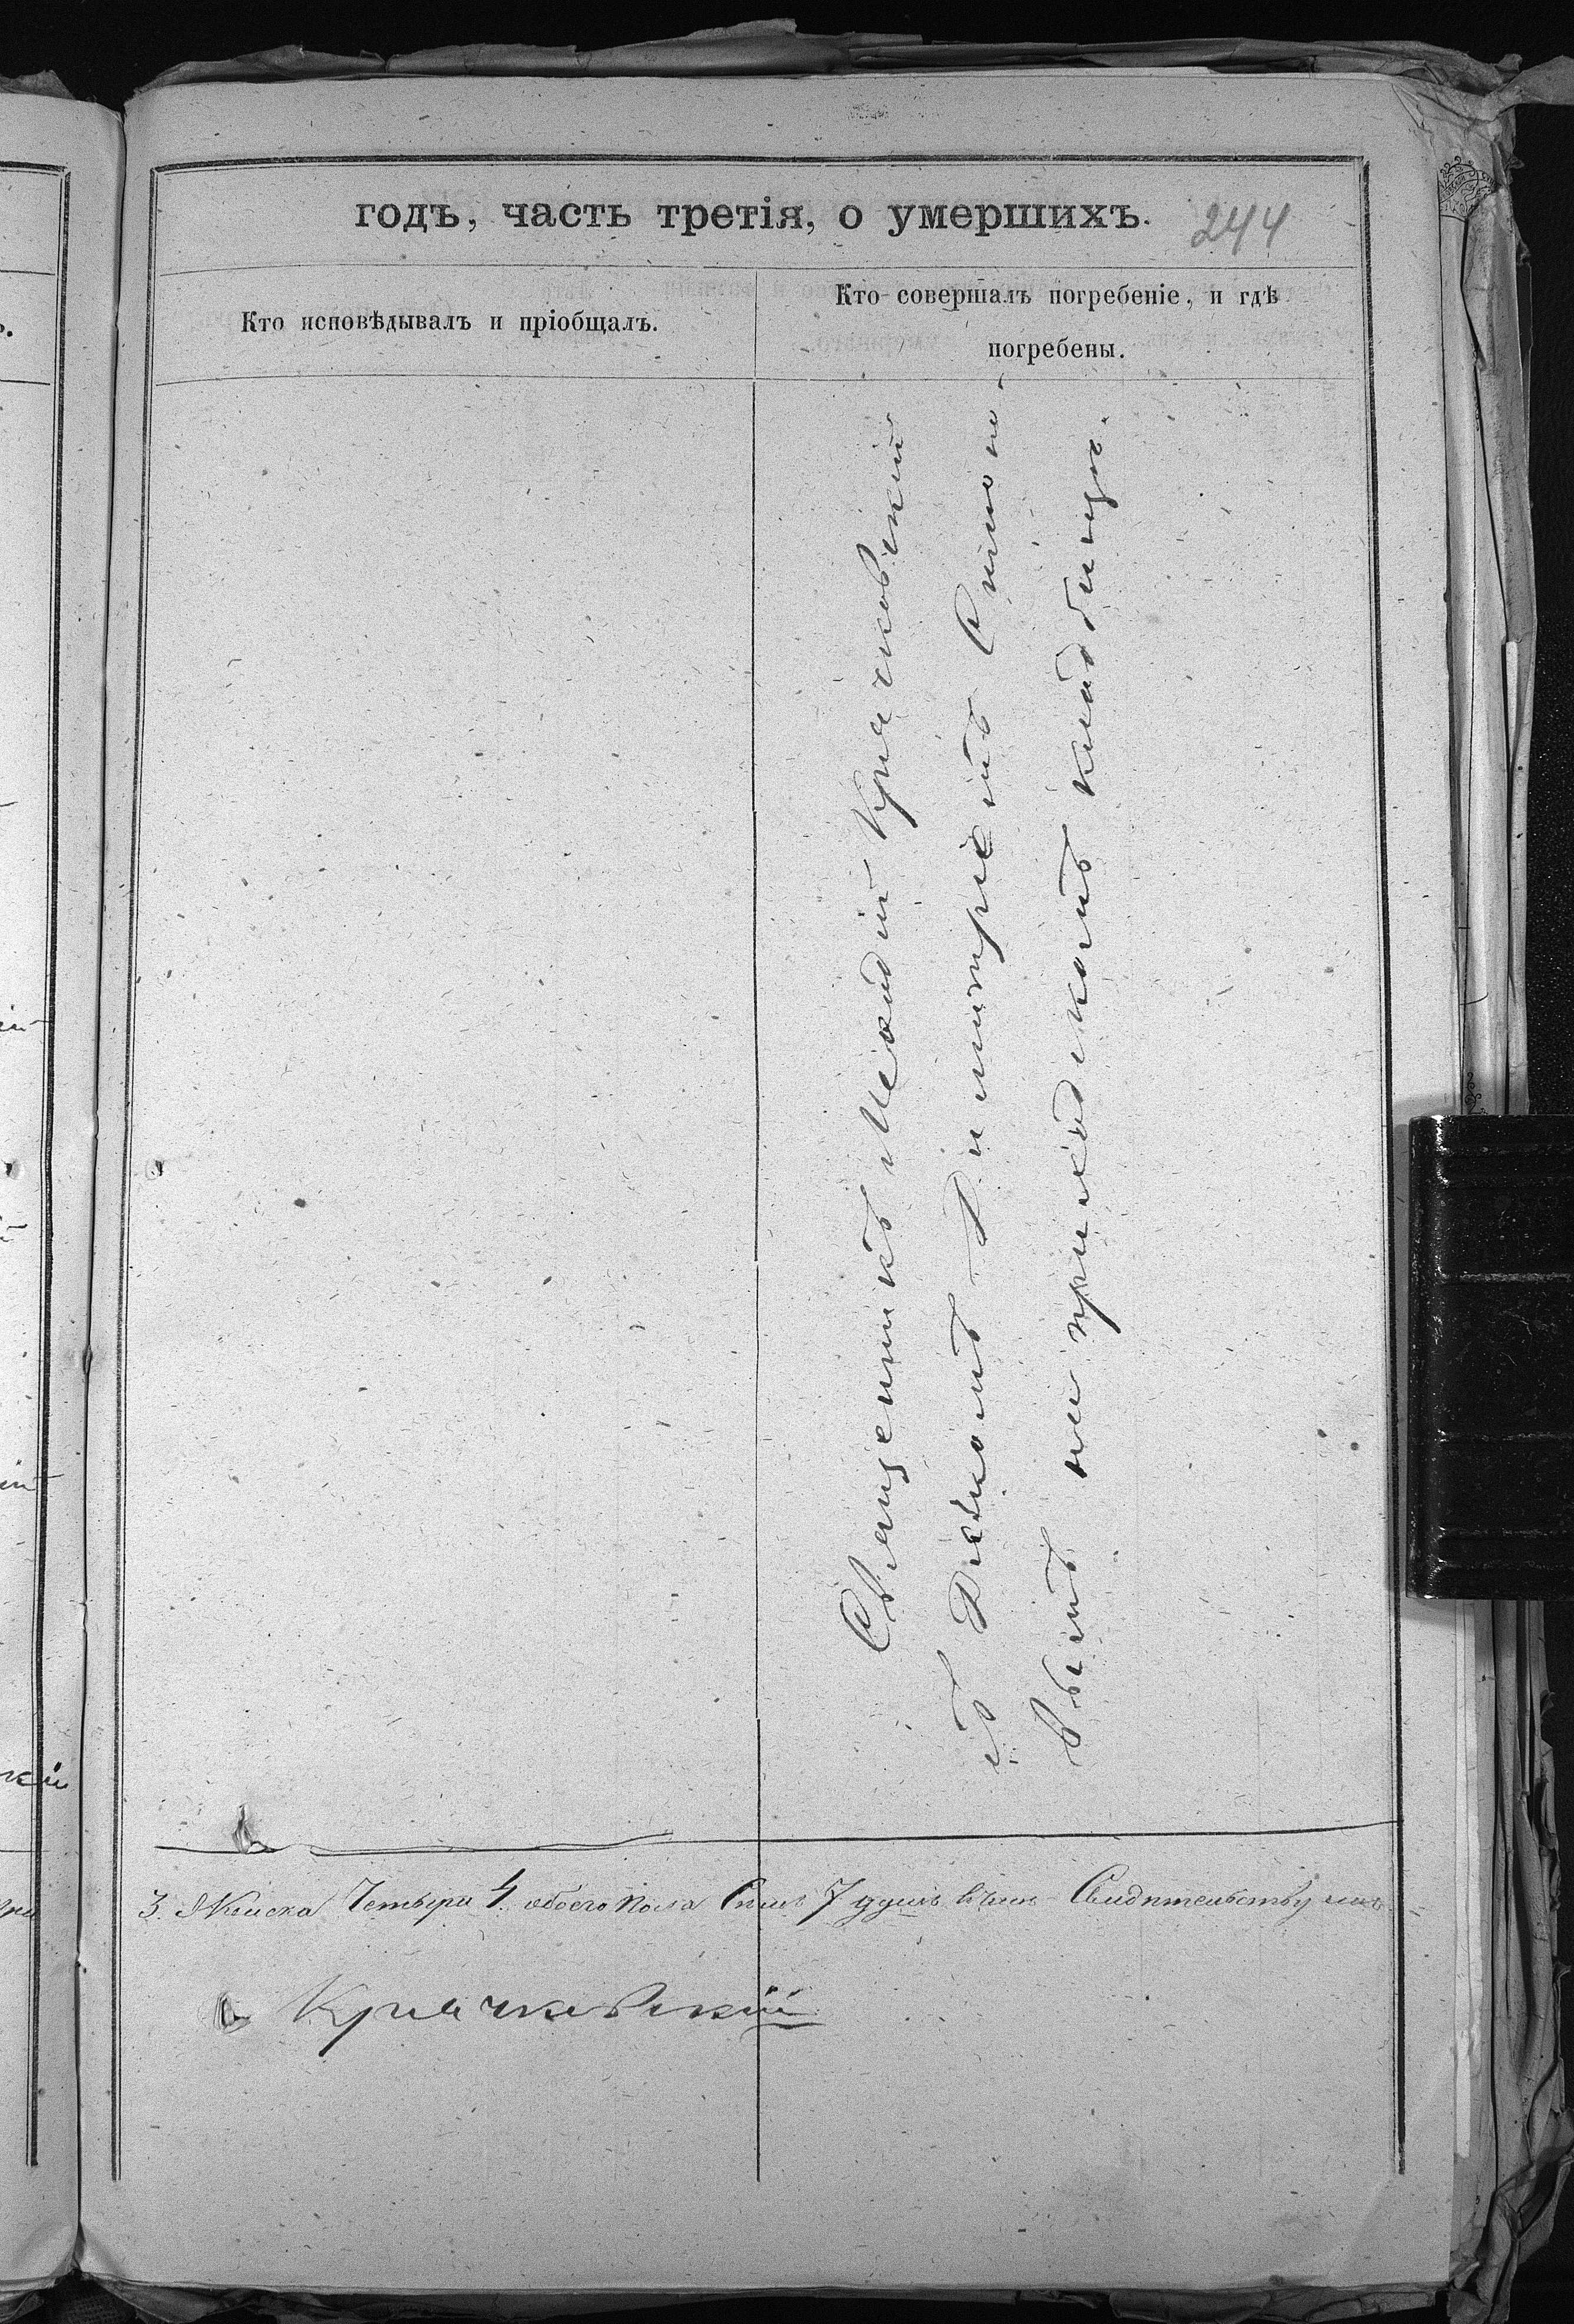 годъ, часть третія, о умершихъ. 244
Кто исповѣдывалъ и пріобщалъ.
Кто совершалъ погребеніе, и гдѣ
погребены.
Священникъ Меѳодій Крячковскій
съ Дьякомъ Димитріемъ
на приходскомъ кладбищѣ.
3. Женска Четыри 4. обоего пола Семь 7 душъ въ чемъ Свидѣтельствуемъ
Крячковскій